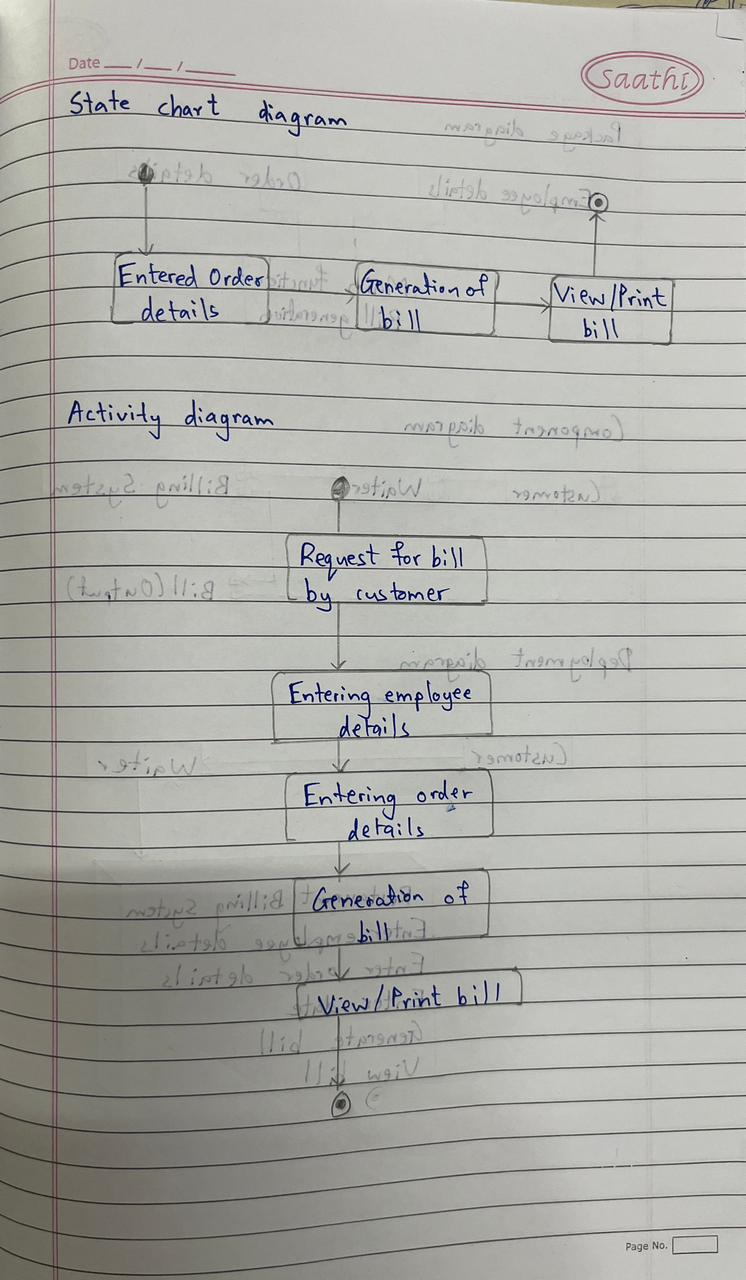 Date __/__/____
Saathi
State chart diagram
Entered Order
details
Generation of
bill
View/Print
bill
Activity diagram
Request for bill
by customer
Entering employee
details
Entering order
details
Generation of
bill
View/Print bill
Page No.